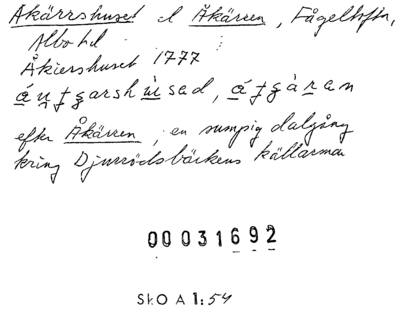 Åkärrshuset el Åkärren, Fågeltofta,
Albo hd
Åkiershuset 1777
efter Åkärren, en sumpig dalgång
kring Djurrödsbäckens källarmar
00031692
SkO A 1:54